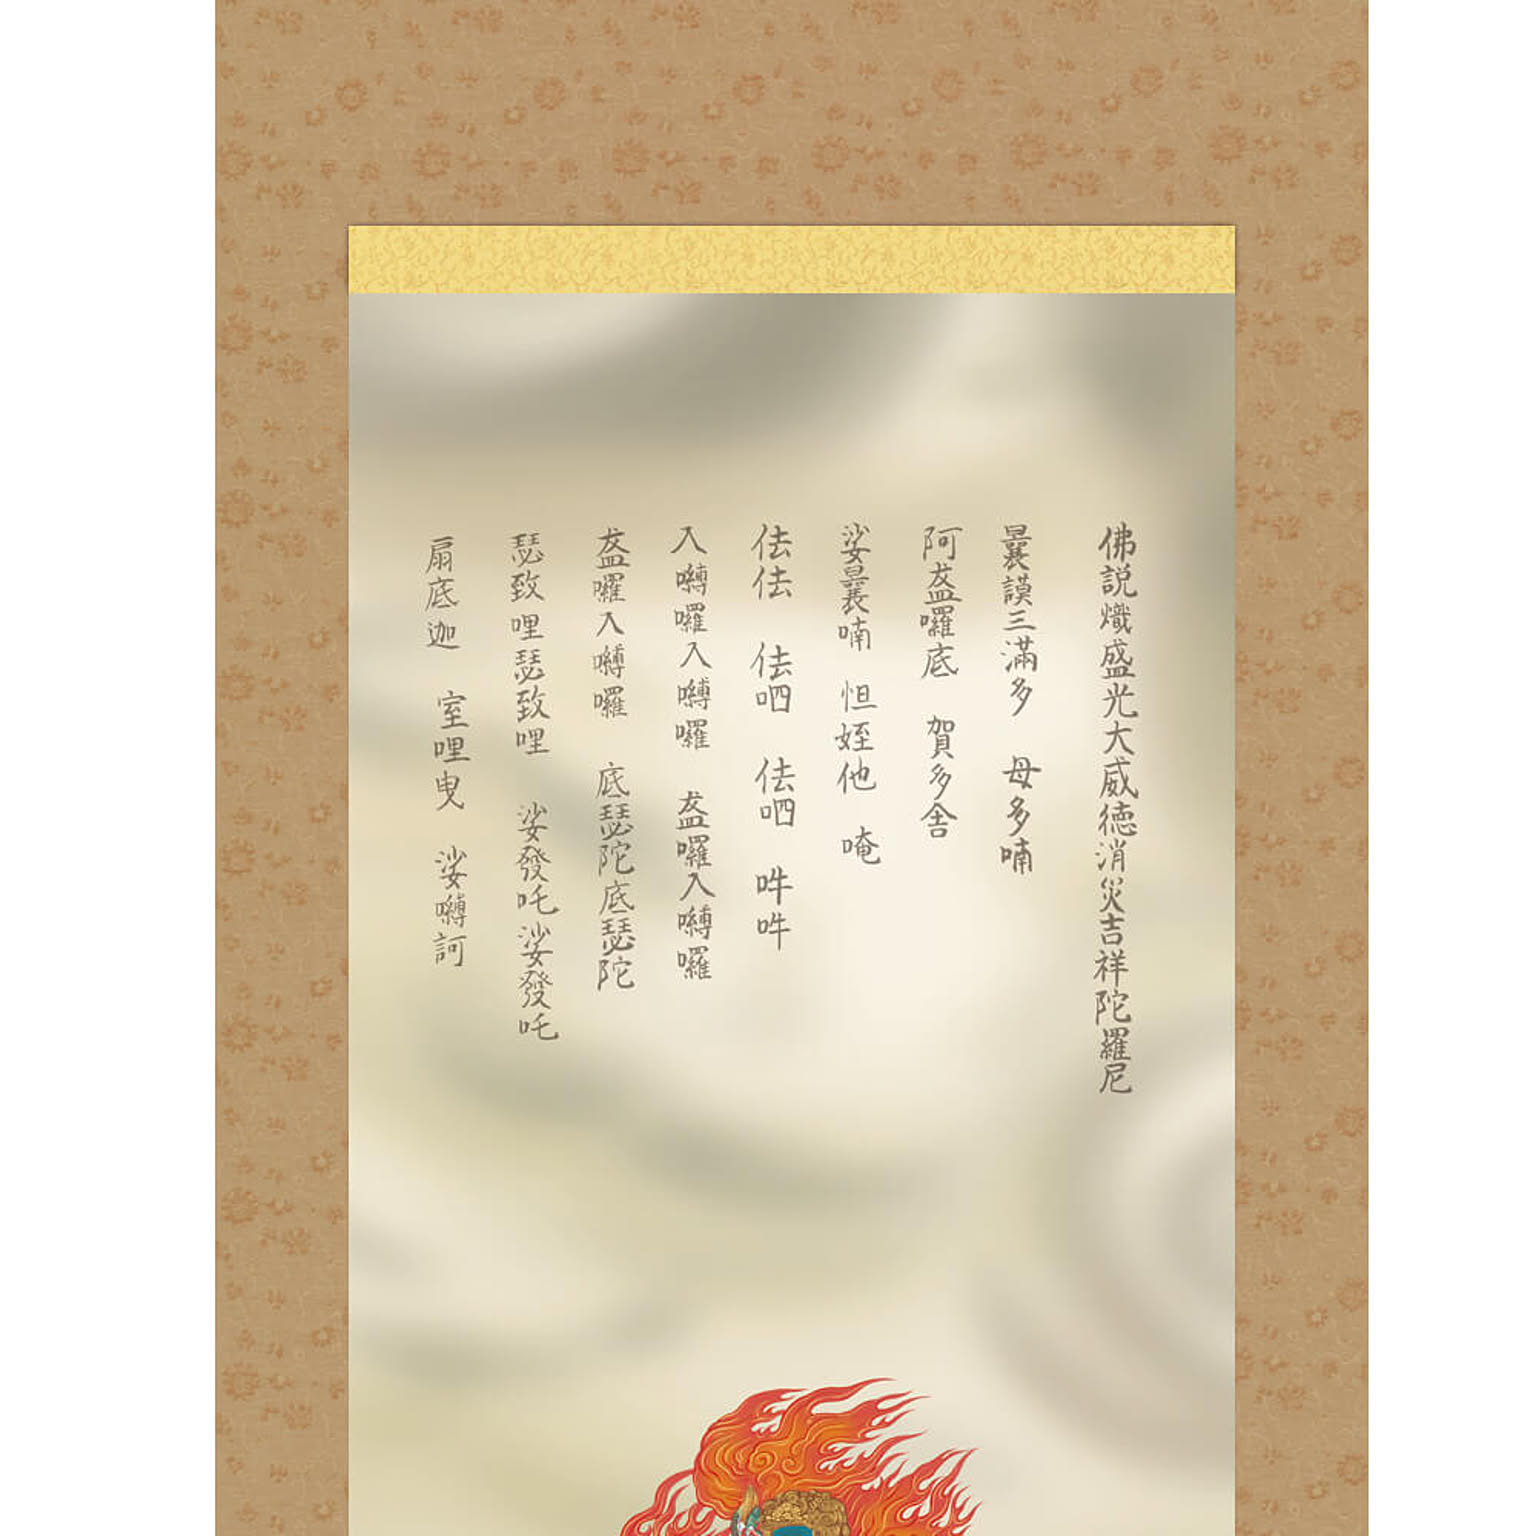 佛説熾盛光大威徳消災吉祥陀羅尼
曩謨三滿多　母多喃
阿盋囉底　賀多舍
娑曩喃　怛姪他　唵
佉佉　佉呬　佉呬　吽吽
入嚩囉入嚩囉　盋囉入嚩囉
盋囉入嚩囉　底瑟陀底瑟陀
瑟致哩瑟致哩　娑發吒娑發吒
扇底迦　室哩曳　娑嚩訶